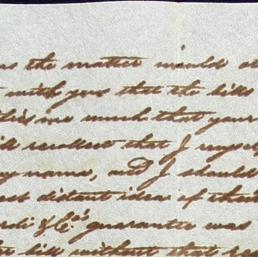 the matter would
with you that the bills
was much that your
recollect that I myself
my name, and I should
distant idea of their
& Co's guarantee was
bill without that